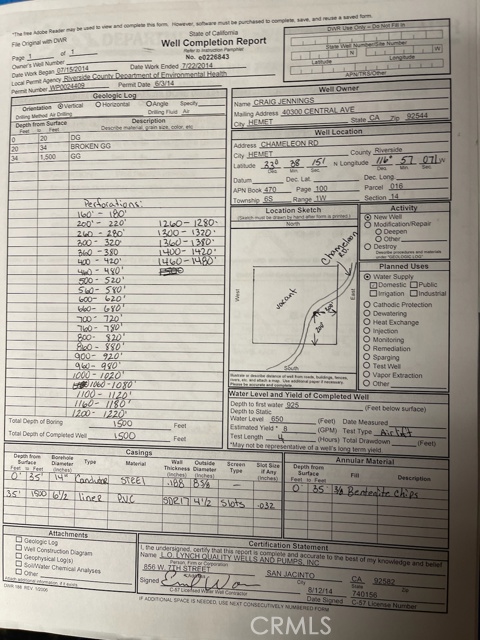 *The free Adobe Reader may be used to view and complete this form. However, software must be purchased to complete, save, and reuse a saved form.
File Original with DWR
State of California
Well Completion Report
Refer to Instruction Pamphlet
No. e0226843
DWR Use Only – Do Not Fill In
State Well Number/Site Number
N
W
Latitude
Longitude
APN/TRS/Other
Page 1 of 1
Owner's Well Number
Date Work Began 07/15/2014 Date Work Ended 7/22/2014
Local Permit Agency Riverside County Department of Environmental Health
Permit Number WP0024409 Permit Date 6/3/14
Geologic Log
Orientation Vertical Horizontal Angle Specify
Drilling Method Air Drilling Drilling Fluid Air
Depth from Surface
Feet to Feet
Description
Describe material, grain size, color, etc
0 20 DG
20 34 BROKEN GG
34 1,500 GG
Perforations:
160' - 180'
200' - 220' 1260-1280'
260 - 280' 1300-1320'
300 - 320' 1360-1380'
360 - 380 1400-1420'
400 - 420' 1460-1480'
460 - 480'
500 - 520'
560 - 580'
600 - 620'
660 - 680'
700 - 720'
760 - 780'
800 - 820'
860 - 880'
900 - 920'
960 - 980'
1000 - 1020'
1060 - 1080'
1100 - 1120'
1160 - 1180'
1200 - 1220'
Total Depth of Boring 1500 Feet
Total Depth of Completed Well 1500 Feet
Well Owner
Name CRAIG JENNINGS
Mailing Address 40300 CENTRAL AVE
City HEMET State CA Zip 92544
Well Location
Address CHAMELEON RD
City HEMET County Riverside
Latitude 38 15' N Longitude 116° 57 07 W
Deg. Min. Sec. Deg. Min. Sec.
Datum Dec. Lat. Dec. Long.
APN Book 470 Page 100 Parcel 016
Township 6S Range 1W Section 14
Location Sketch
(Sketch must be drawn by hand after form is printed.)
North
West
East
South
vacant
Chameleon Rd
200'
Illustrate or describe distance of well from roads, buildings, fences, rivers, etc. and attach a map. Use additional paper if necessary. Please be accurate and complete.
Activity
New Well
Modification/Repair
Deepen
Other
Destroy
Describe procedures and materials under "GEOLOGIC LOG"
Planned Uses
Water Supply
Domestic Public
Irrigation Industrial
Cathodic Protection
Dewatering
Heat Exchange
Injection
Monitoring
Remediation
Sparging
Test Well
Vapor Extraction
Other
Water Level and Yield of Completed Well
Depth to first water 925 (Feet below surface)
Depth to Static
Water Level 650 (Feet) Date Measured
Estimated Yield* 8 (GPM) Test Type Airlift
Test Length 4 (Hours) Total Drawdown (Feet)
*May not be representative of a well's long term yield
Casings
Depth from Surface
Feet to Feet
Borehole Diameter (Inches)
Type
Material
Wall Thickness (Inches)
Outside Diameter (Inches)
Screen Type
Slot Size if Any (Inches)
0' 35' 14" Conductor STEEL .188 8 5/8
35' 1500 6 1/2 liner PVC SDR17 4 1/2 Slots .032
Annular Material
Depth from Surface
Feet to Feet
Fill
Description
0 35 3/8 Bentonite Chips
Attachments
Geologic Log
Well Construction Diagram
Geophysical Log(s)
Soil/Water Chemical Analyses
Other
Attach additional information, if it exists
Certification Statement
I, the undersigned, certify that this report is complete and accurate to the best of my knowledge and belief
Name L.O. LYNCH QUALITY WELLS AND PUMPS, INC
Person, Firm or Corporation
656 W. 7TH STREET SAN JACINTO CA 92582
City State Zip
Signed 8/12/14 740156
C-57 Licensed Water Well Contractor Date Signed C-57 License Number
DWR 188 REV. 1/2006
IF ADDITIONAL SPACE IS NEEDED, USE NEXT CONSECUTIVELY NUMBERED FORM
CRMLS